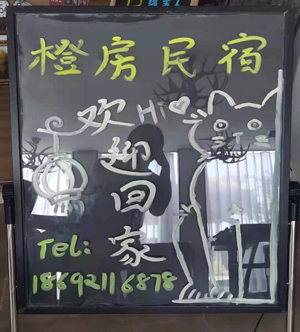 橙房民宿
Hi
欢迎回家
Tel:
18692116878